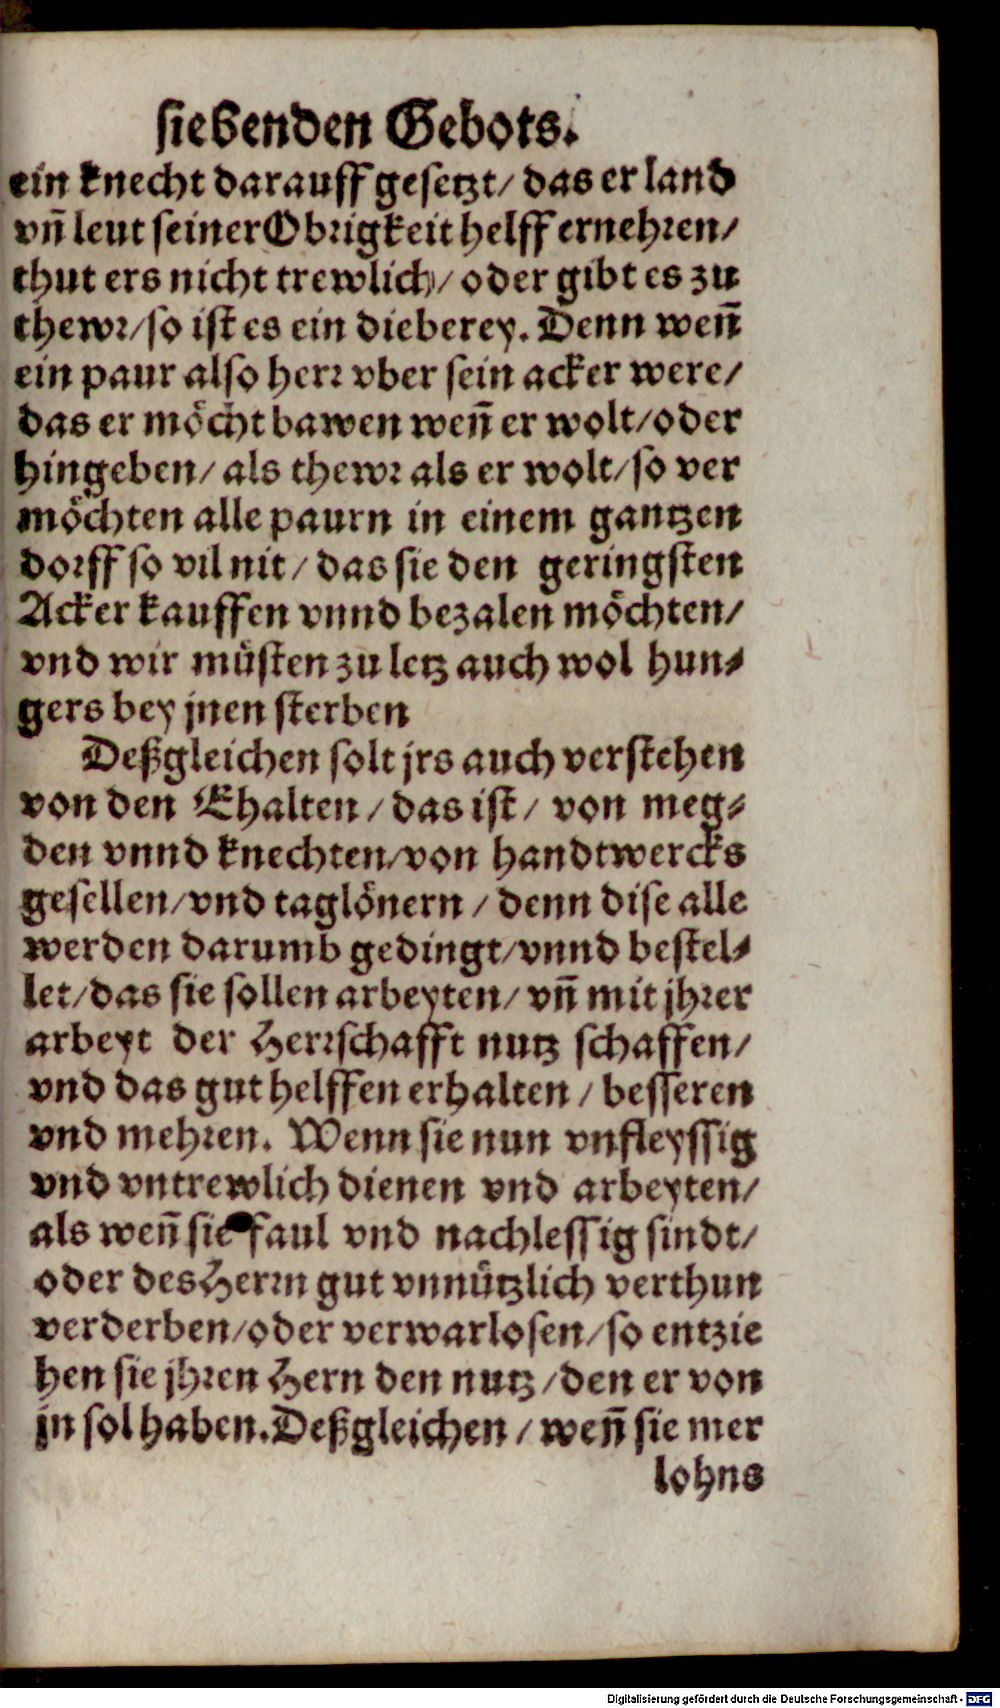 siebenden Gebots.
ein knecht darauff gesetzt/ das er land
vn̄ leut seiner Obrigkeit helff ernehren/
thut ers nicht trewlich/ oder gibt es zu
thewr/so ist es ein dieberey. Denn wen̄
ein paur also herr vber sein acker were/
das er möcht bawen wen̄ er wolt/oder
hingeben/ als thewr als er wolt/so ver
möchten alle paurn in einem gantzen
dorff so vil nit/ das sie den geringsten
Acker kauffen vnnd bezalen möchten/
vnd wir müsten zu letz auch wol hun⸗
gers bey jnen sterben
Deßgleichen solt jrs auch verstehen
von den Ehalten/ das ist/ von meg⸗
den vnnd knechten/von handtwercks
gesellen/vnd taglönern/ denn dise alle
werden darumb gedingt/vnnd bestel⸗
let/das sie sollen arbeyten/ vn̄ mit jhrer
arbeyt der Herrschafft nutz schaffen/
vnd das gut helffen erhalten/ besseren
vnd mehren. Wenn sie nun vnfleyssig
vnd vntrewlich dienen vnd arbeyten/
als wen̄ sie faul vnd nachlessig sindt/
oder des Herrn gut vnnützlich verthun
verderben/oder verwarlosen/so entzie
hen sie jhren Hern den nutz/den er von
jn sol haben. Deßgleichen/ wen̄ sie mer
lohns
Digitalisierung gefördert durch die Deutsche Forschungsgemeinschaft - DFG